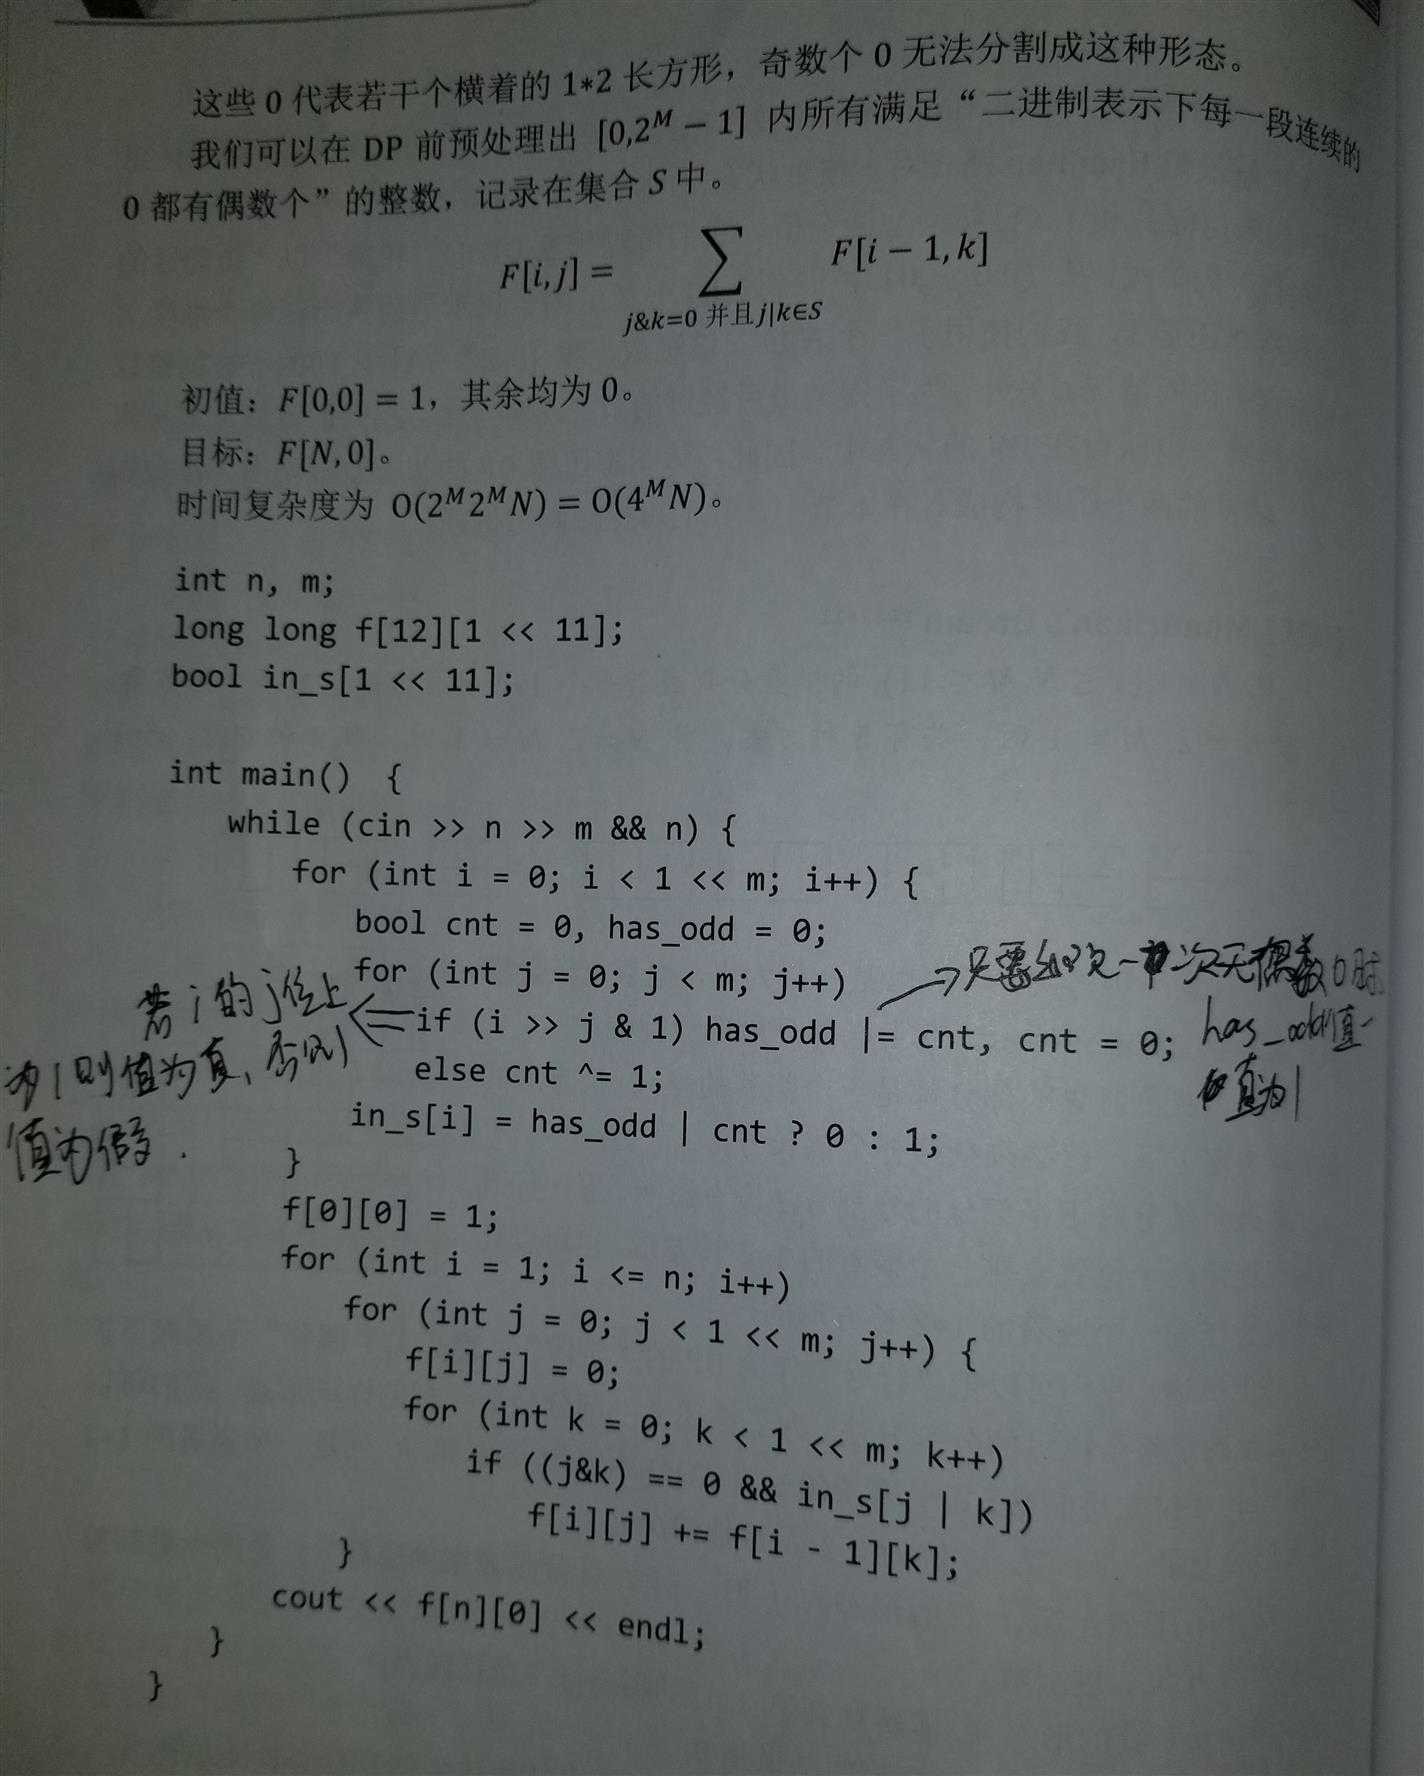 这些 0 代表若干个横着的 1*2 长方形，奇数个 0 无法分割成这种形态。
我们可以在 DP 前预处理出 [0,2^M − 1] 内所有满足“二进制表示下每一段连续的
0 都有偶数个”的整数，记录在集合 S 中。
F[i,j] = ∑ F[i − 1,k]
j&k=0 并且j|k∈S
初值：F[0,0] = 1，其余均为 0。
目标：F[N,0]。
时间复杂度为 O(2^M2^MN) = O(4^MN)。
int n, m;
long long f[12][1 << 11];
bool in_s[1 << 11];
int main() {
while (cin >> n >> m && n) {
for (int i = 0; i < 1 << m; i++) {
bool cnt = 0, has_odd = 0;
for (int j = 0; j < m; j++)
→只要出现一次 偶数0
若i的j位上
if (i >> j & 1) has_odd |= cnt, cnt = 0;
has_odd值
为1则值为真，否则
else cnt ^= 1;
真为1
in_s[i] = has_odd | cnt ? 0 : 1;
值为假.
}
f[0][0] = 1;
for (int i = 1; i <= n; i++)
for (int j = 0; j < 1 << m; j++) {
f[i][j] = 0;
for (int k = 0; k < 1 << m; k++)
if ((j&k) == 0 && in_s[j | k])
f[i][j] += f[i - 1][k];
}
cout << f[n][0] << endl;
}
}